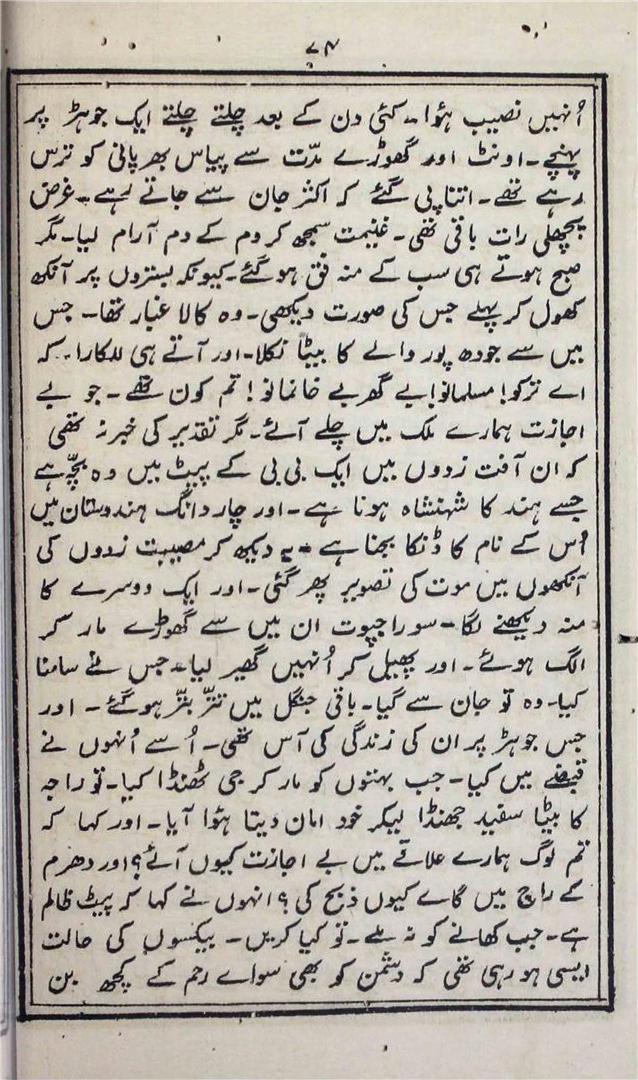 ۷۴
اُنہیں نصیب ہُوا۔ کئی دن کے بعد چلتے چلتے ایک جوہڑ پر
پہنچے۔ اونٹ اور گھوڑے مدّت سے پیاس بھر پانی کو ترس
رہے تھے۔ اتنا پی گئے کہ اکثر جان سے جاتے رہے۔ غرض
پچھلی رات باقی تھی۔ غنیمت سمجھ کر دم کے دم آرام لیا۔ مگر
صبح ہوتے ہی سب کے منہ فق ہو گئے۔ کیونکہ بستروں پر آنکھ
کھول کر پہلے جس کی صورت دیکھی۔ وہ کالا غبار تھا۔ جس
میں سے جودھ پور والے کا بیٹا نکلا۔ اور آتے ہی للکارا۔ کہ
اے ترکو! مسلمانو! بے گھر بے خانمانو! تم کون تھے۔ جو بے
اجازت ہمارے ملک میں چلے آئے۔ مگر تقدیر کی خبر نہ تھی
کہ ان آفت زدوں میں ایک بی بی کے پیٹ میں وہ بچّہ ہے
جسے ہند کا شہنشاہ ہونا ہے۔ اور چار دانگ ہندوستان میں
اُس کے نام کا ڈنکا بجنا ہے۔ یہ دیکھ کر مصیبت زدوں کی
آنکھوں میں موت کی تصویر پھر گئی۔ اور ایک دوسرے کا
منہ دیکھنے لگا۔ سو راجپوت ان میں سے گھوڑے مار کر
الگ ہوئے۔ اور پھیل کر اُنہیں گھیر لیا۔ جس نے سامنا
کیا۔ وہ تو جان سے گیا۔ باقی جنگل میں تتّر بتّر ہو گئے۔ اور
جس جوہڑ پر ان کی زندگی کی آس تھی۔ اُسے اُنہوں نے
قبضے میں کیا۔ جب بہتوں کو مار کر جی ٹھنڈا کیا۔ تو راجہ
کا بیٹا سفید جھنڈا لیکر خود امان دیتا ہُوا آیا۔ اور کہا کہ
تم لوگ ہمارے علاقے میں بے اجازت کیوں آئے؟ اور دھرم
کے راج میں گاے کیوں ذبح کی؟ انہوں نے کہا کہ پیٹ ظالم
ہے۔ جب کھانے کو نہ ملے۔ تو کیا کریں۔ بیکسوں کی حالت
ایسی ہو رہی تھی کہ دشمن کو بھی سواے رحم کے کچھ بن